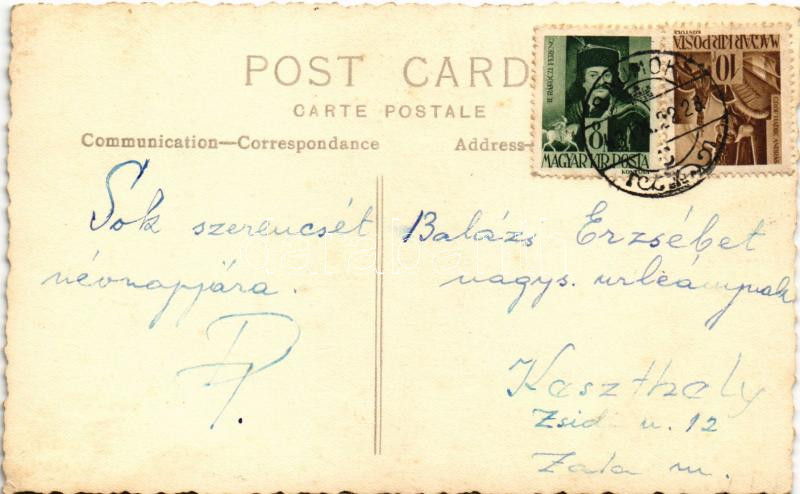 POST CARD
CARTE POSTALE
Communication—Correspondance
Address—
II. RÁKÓCZI FERENC
8
MAGYAR KIR. POSTA
MAGYAR KIR. POSTA
10
Sok szerencsét
névnapjára.
Balázs Erzsébet
nagys. urleánynak
Kaszthely
Zsid. u. 12
Zala m.